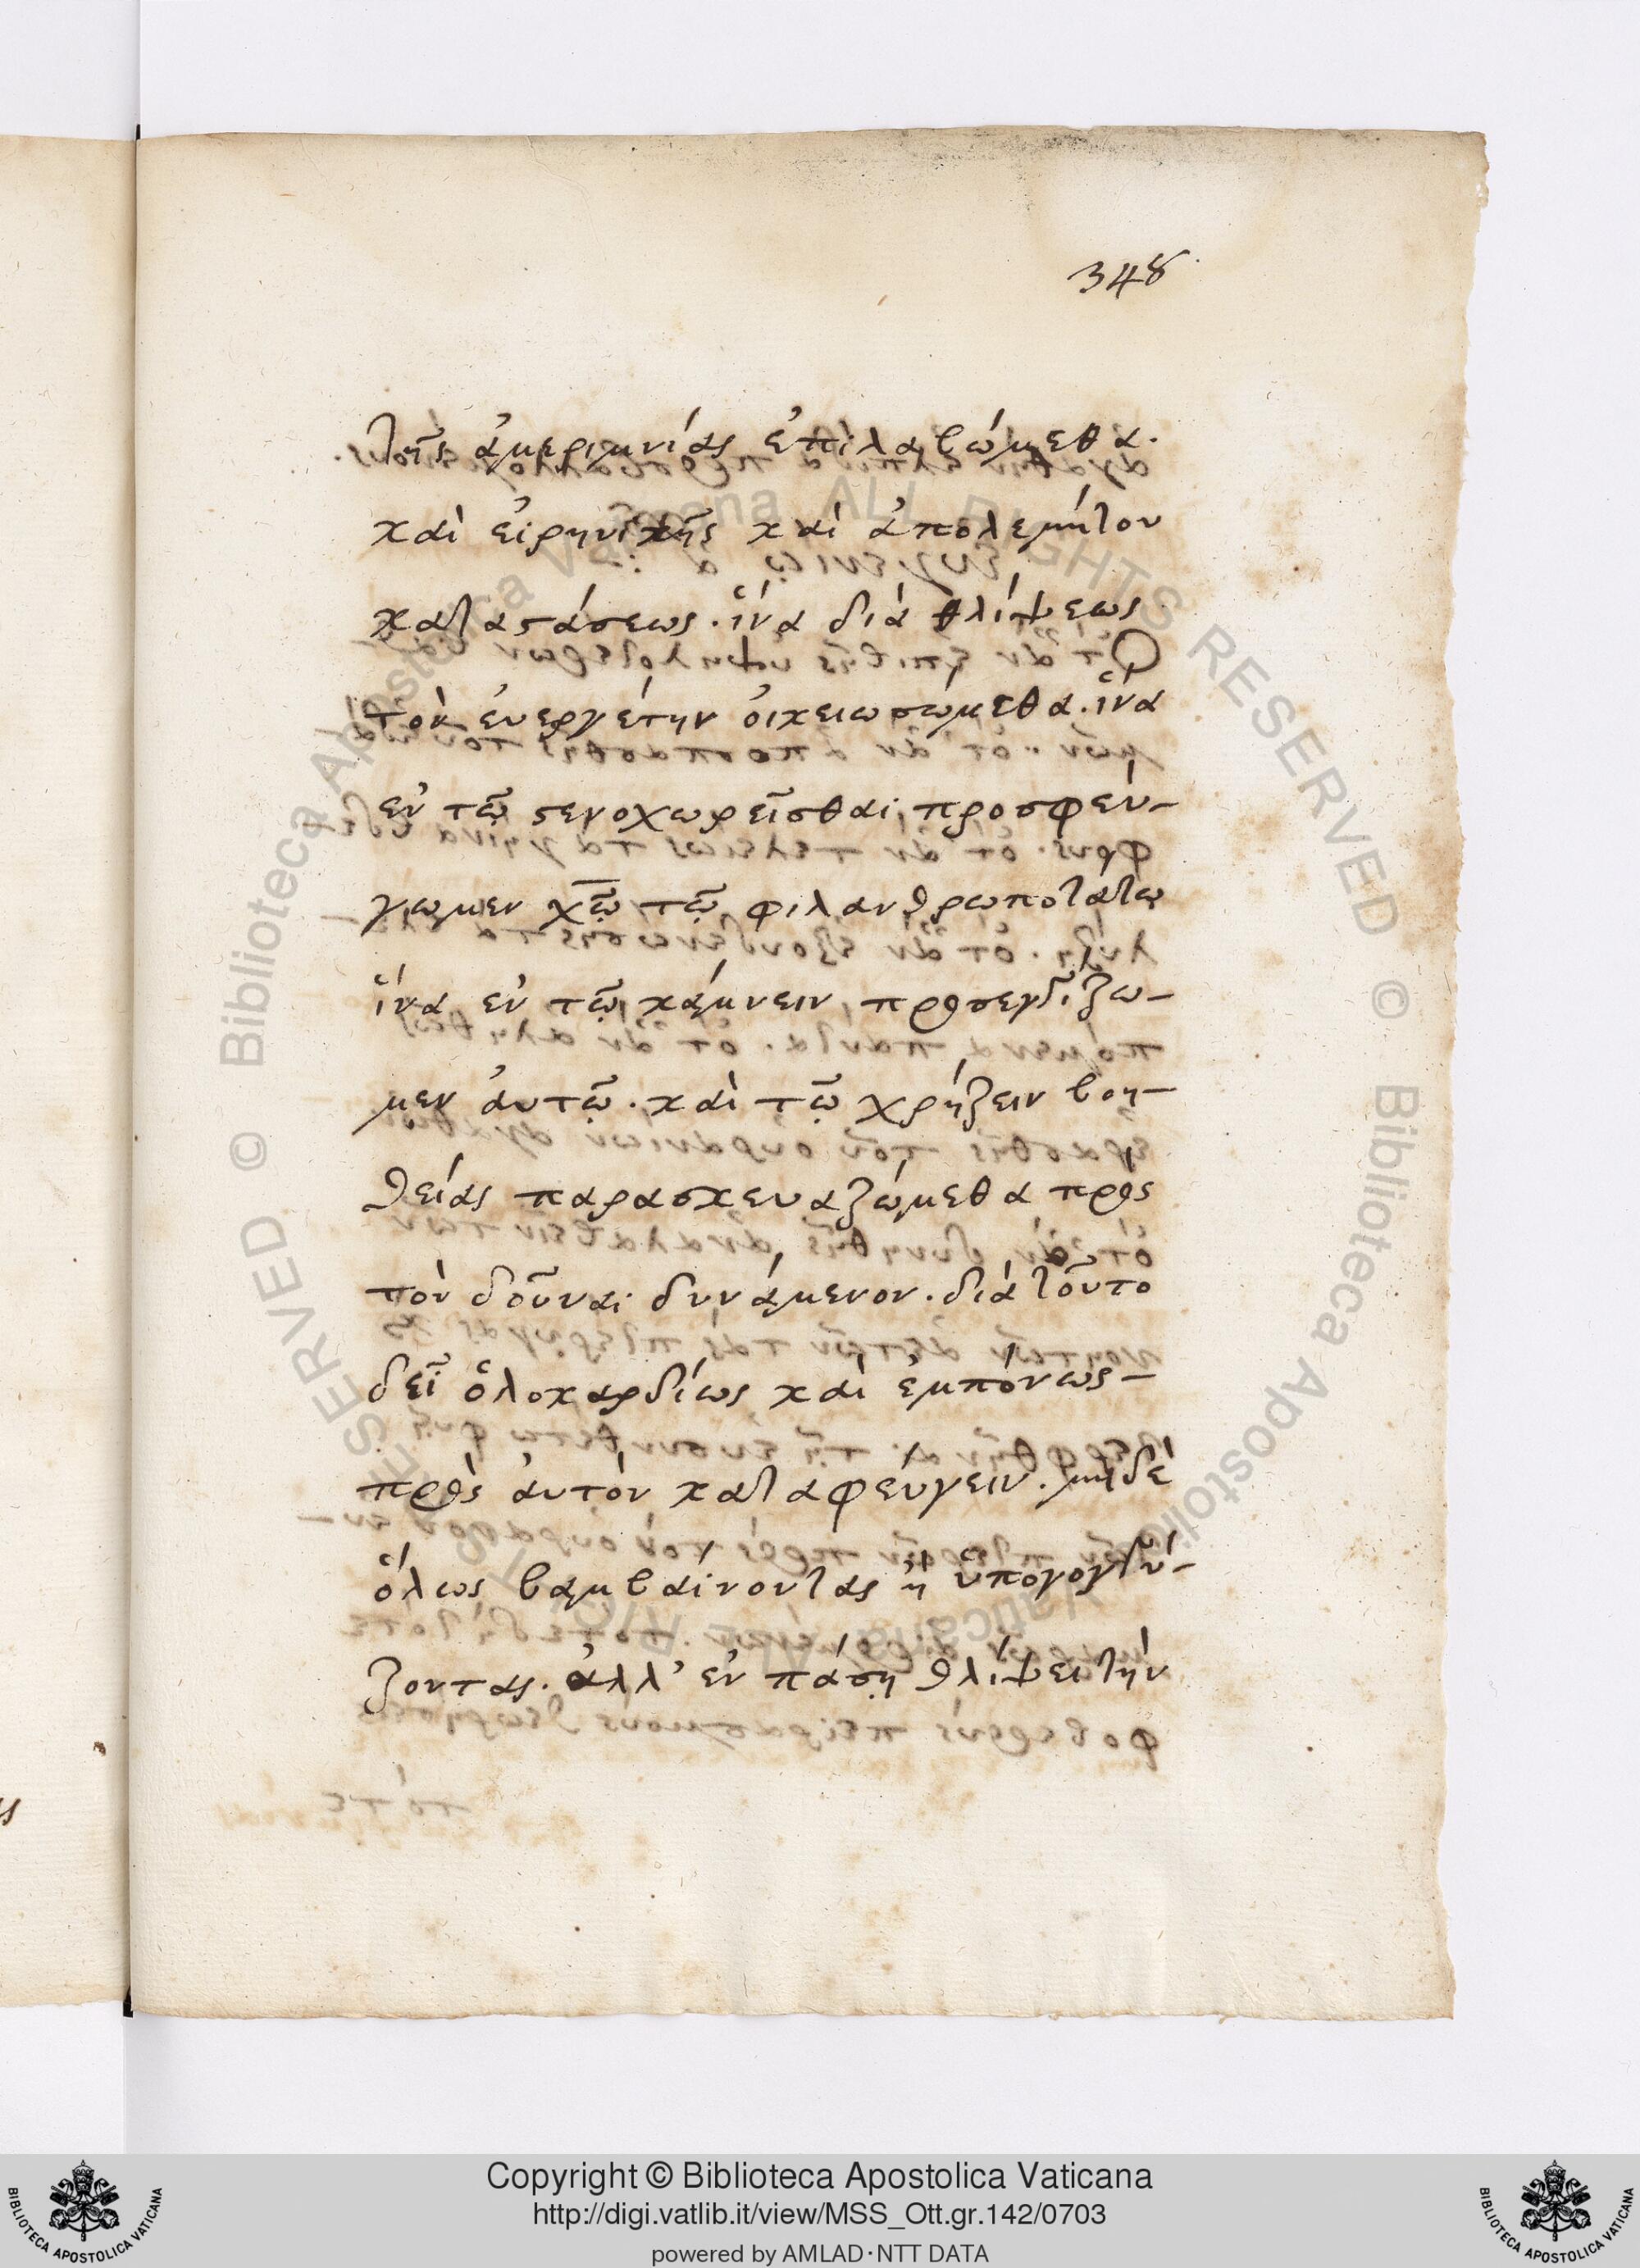 348
τῆς ἀμεριμνίας ἐπιλαβώμεθα.
καὶ εἰρηνικῆς καὶ ἀπολεμήτου
καταστάσεως. ἵνα διὰ θλίψεως
τὸν ἐυεργέτην ὀικειωσώμεθα. ἵνα
ἐν τῶ στενοχωρεῖσθαι, προσφεύ-
γωμεν χῶ τῶ φιλανθρωποτάτω
ἵνα ἐν τῶ κάμνειν, προσεγγίζω-
μεν ἀυτῶ. καὶ τῶ χρήζειν βοη-
θείας παρασκευαζώμεθα πρὸς
τὸν δοῦναι δυνάμενον. διὰ τοῦτο
δεῖ ὁλοκαρδίως καὶ ἐμπόνως-
πρὸς ἀυτὸν καταφεύγειν. μηδὲ
ὅλως βαμβαίνοντας ἢ ὑπογογγύ-
ζοντας. ἀλλ' ἐν πάσῃ θλίψει τὴν
Copyright © Biblioteca Apostolica Vaticana
http://digi.vatlib.it/view/MSS_Ott.gr.142/0703
powered by AMLAD·NTT DATA
BIBLIOTECA APOSTOLICA VATICANA
BIBLIOTECA APOSTOLICA VATICANA